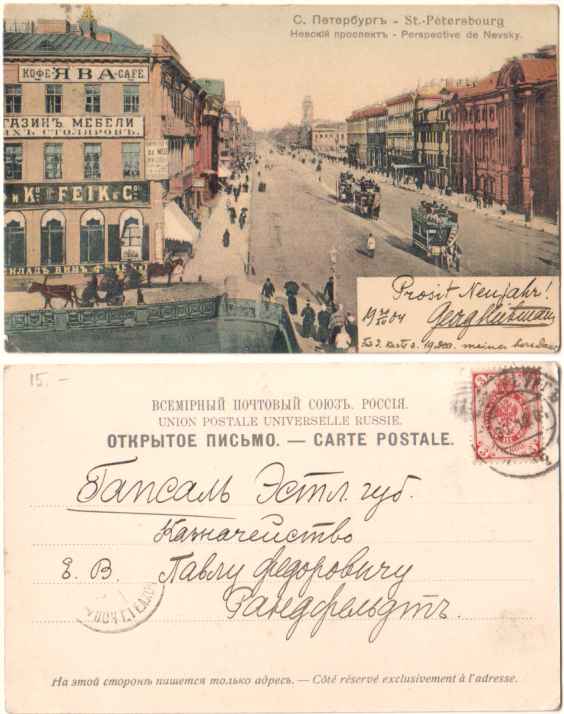 С. Петербургъ - St.-Pétersbourg
Невскій проспектъ - Perspective de Nevsky.
КОФЕ ЯВА CAFÉ
АГАЗИНЪ МЕБЕЛИ
ИХЪ СТОЛЯРОВЪ
И Кº FEIK & Cº
СКЛАДЪ ВИНЪ
Prosit Neujahr!
19 04
Georg
15.-
ВСЕМІРНЫЙ ПОЧТОВЫЙ СОЮЗЪ. РОССІЯ.
UNION POSTALE UNIVERSELLE RUSSIE.
ОТКРЫТОЕ ПИСЬМО. — CARTE POSTALE.
Гапсаль Эстл. губ.
Казначейство
Е. В. Павлу Федоровичу
Рандфельдтъ.
На этой сторонѣ пишется только адресъ. — Côté réservé exclusivement à l'adresse.